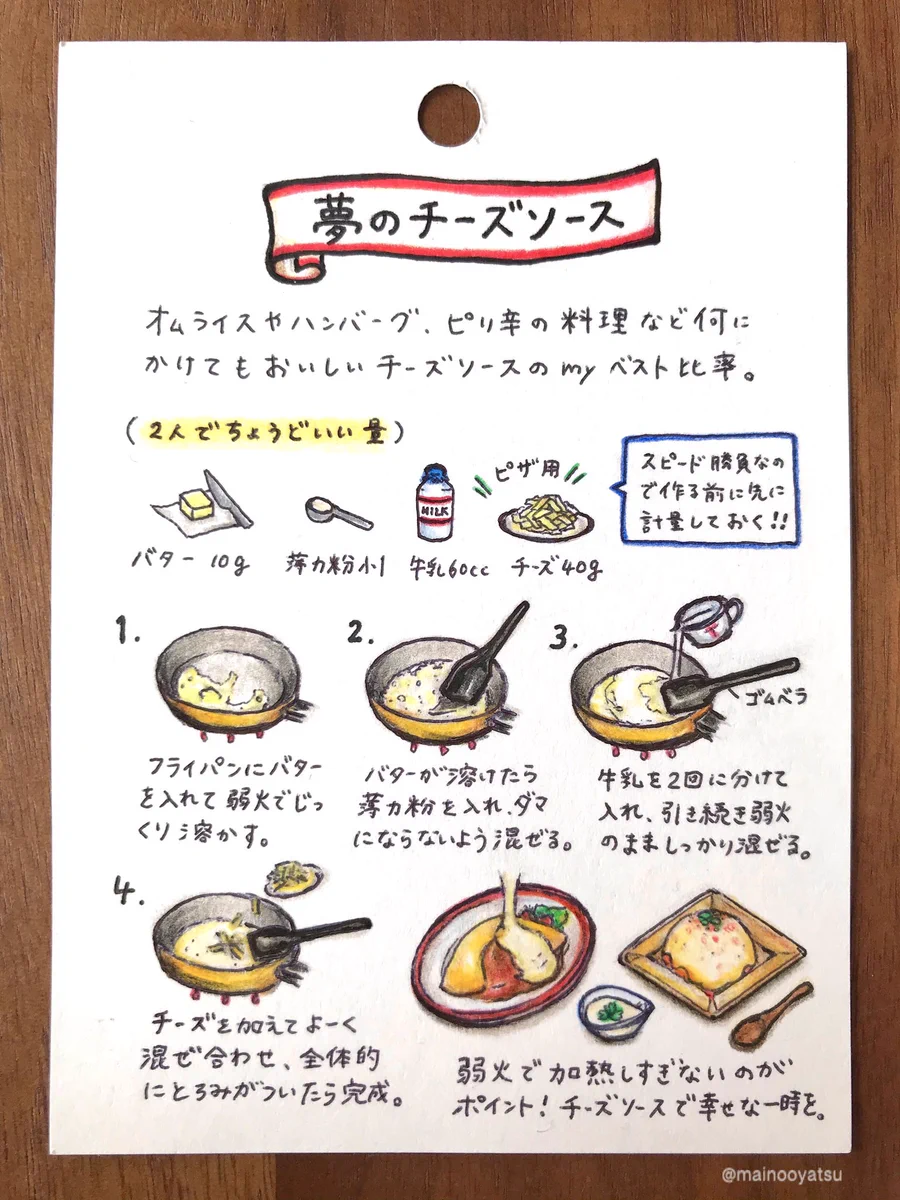 夢のチーズソース
オムライスやハンバーグ、ピリ辛の料理など何に
かけてもおいしいチーズソースのmyベスト比率。
(2人でちょうどいい量)
ピザ用
スピード勝負なの
で作る前に先に
計量しておく!!
MILK
バター 10g
薄力粉小1
牛乳60cc
チーズ40g
1.
フライパンにバター
を入れて弱火でじっ
くり溶かす。
2.
バターが溶けたら
薄力粉を入れ、ダマ
にならないよう混ぜる。
3.
ゴムベラ
牛乳を2回に分けて
入れ、引き続き弱火
のまましっかり混ぜる。
4.
チーズを加えてよーく
混ぜ合わせ、全体的
にとろみがついたら完成。
弱火で加熱しすぎないのが
ポイント!チーズソースで幸せな一時を。
@mainooyatsu